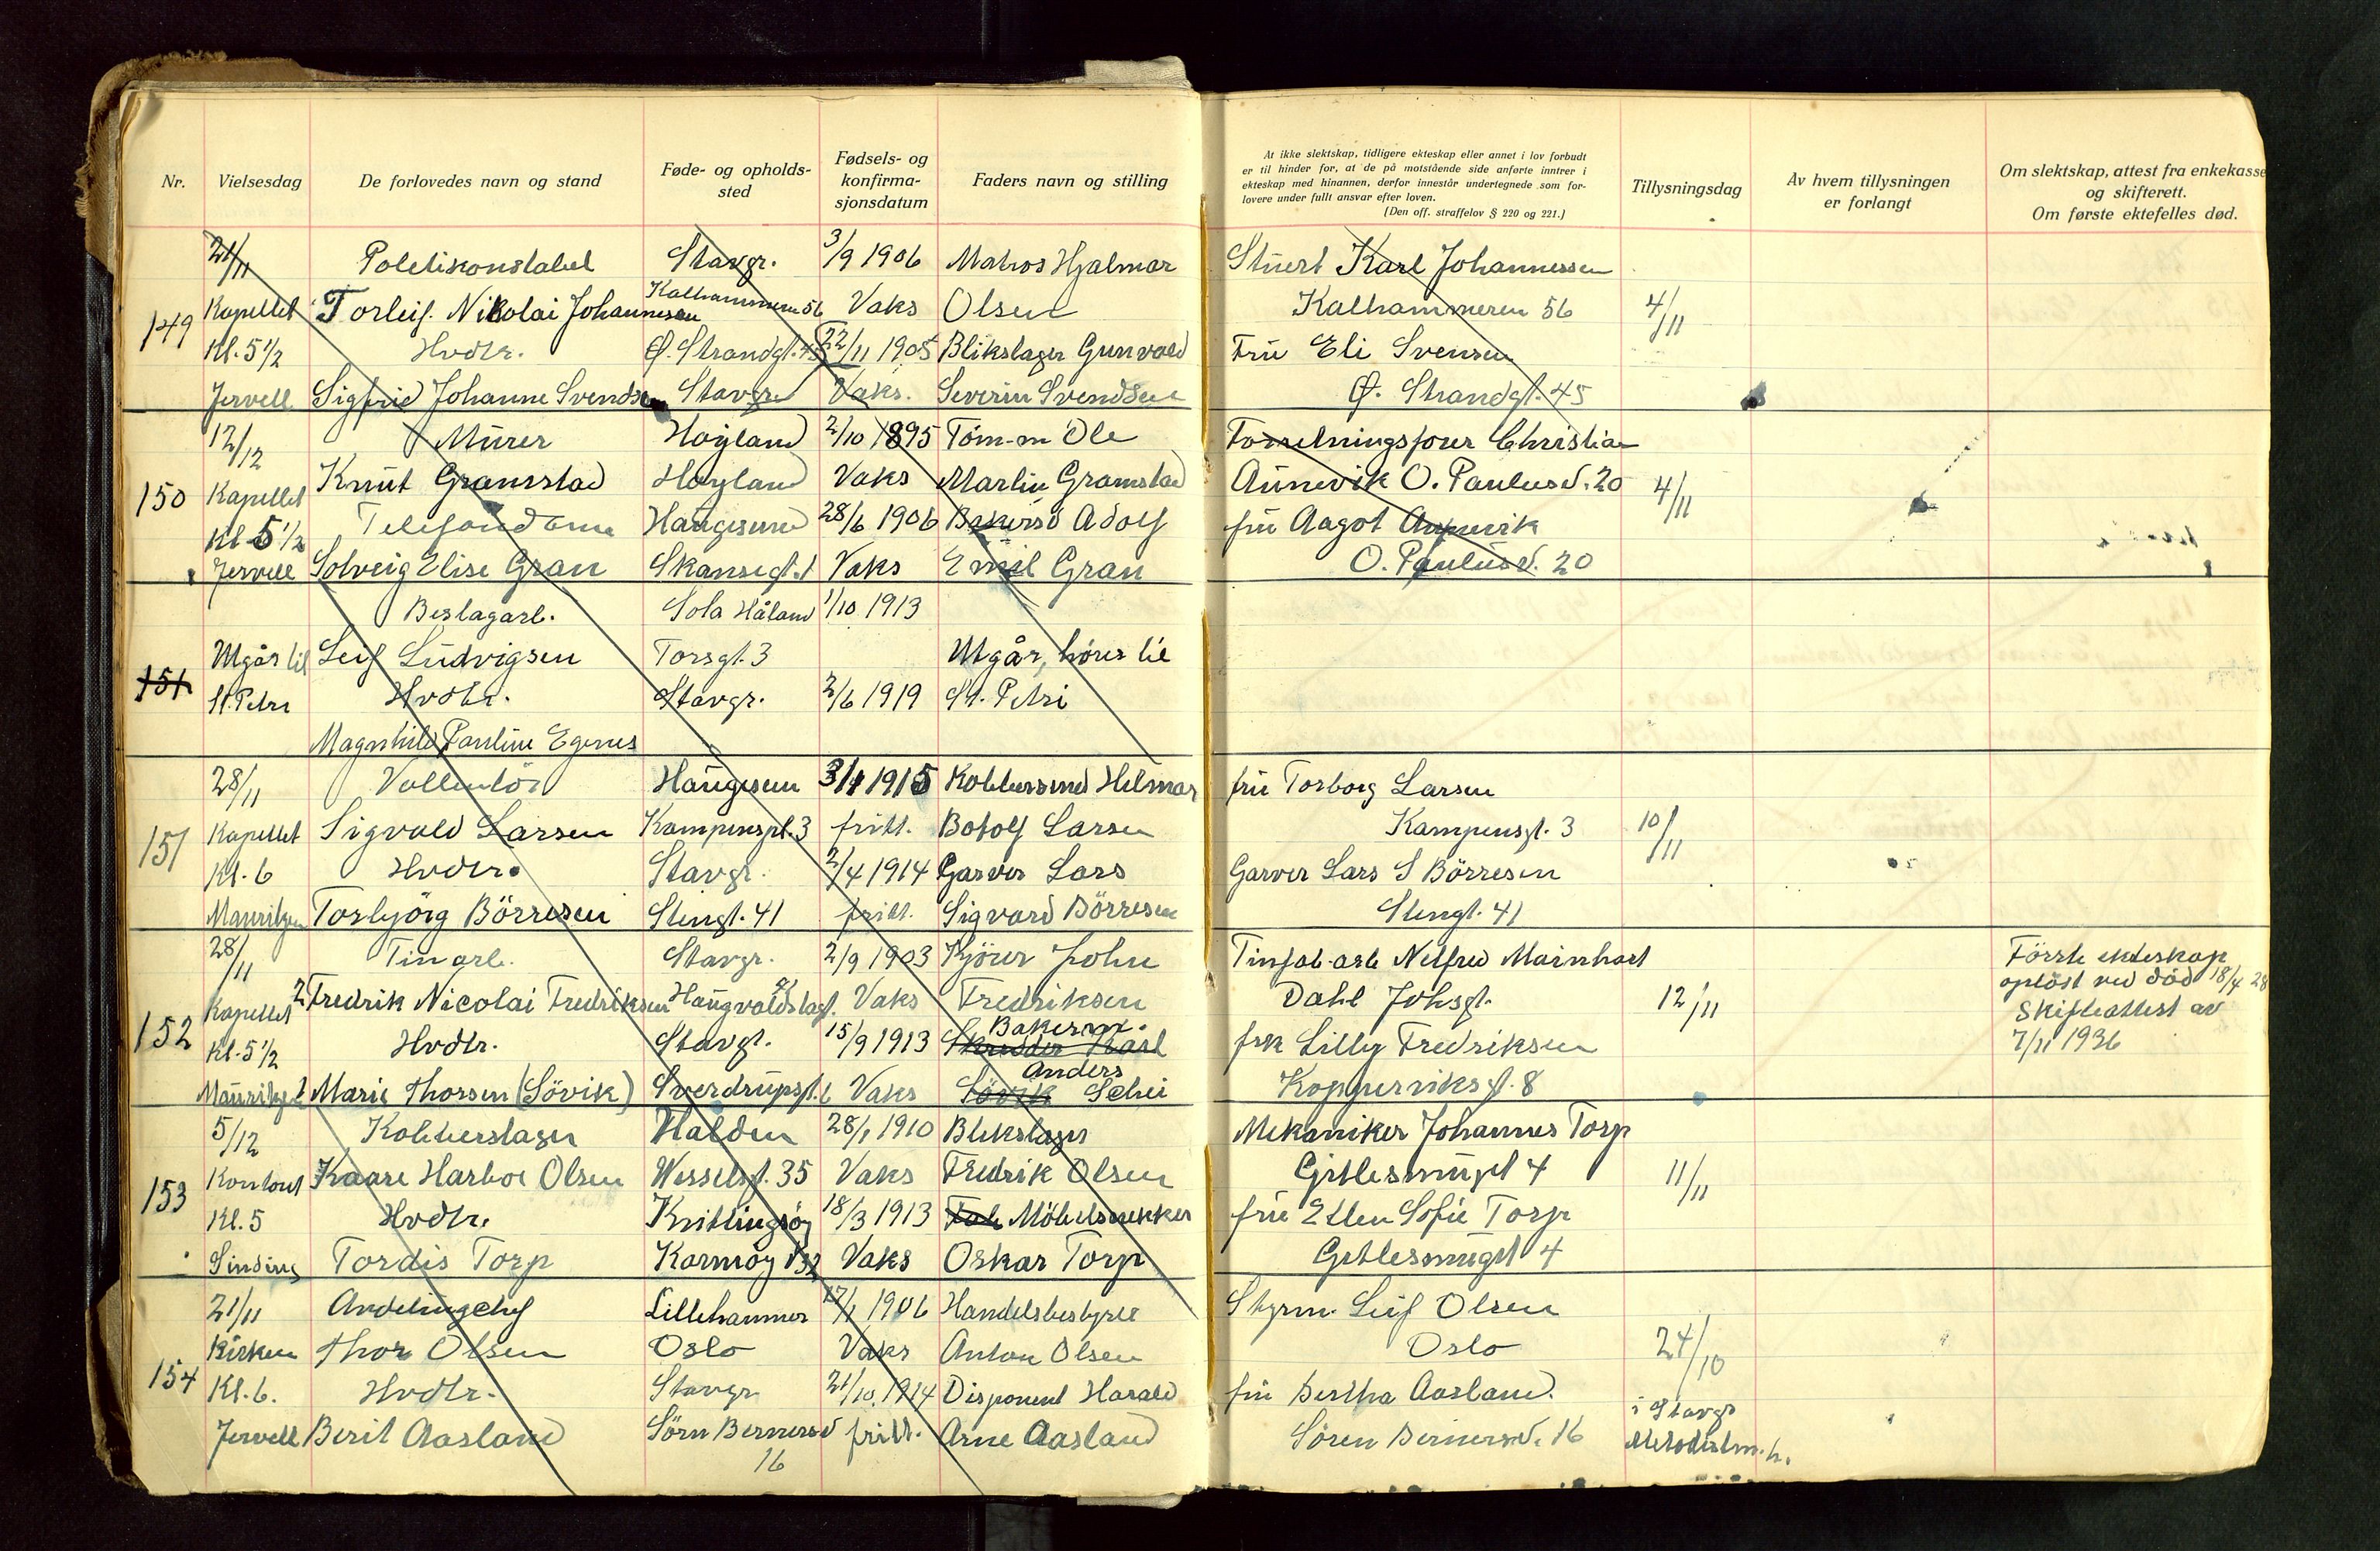 Nr.
Vielsesdag
De forlovedes navn og stand
Føde- og opholds-
sted
Fødsels- og
konfirma-
sjonsdatum
Faders navn og stilling
At ikke slektskap, tidligere ekteskap eller annet i lov forbudt
er til hinder for, at de på motstående side anførte inntrer i
ekteskap med hinannen, derfor innestår undertegnede som for-
lovere under fullt ansvar efter loven.
(Den off. straffelov § 220 og 221.)
Tillysningsdag
Av hvem tillysningen
er forlangt
Om slektskap, attest fra enkekasse
og skifterett.
Om første ektefelles død.
21/11 Politikonstabel Stavgr. 3/9 1906 Matros Hjalmar Stuert Karl Johannessen
149 Kapellet Torleif Nikolai Johannesen Kalhammeren 56 Vaks Olsen Kalhammeren 56 4/11
Kl. 5 1/2 Hvdtr. Ø. Strandgt. 45 22/11 1905 Blikslager Gunvald Fru Eli Svensen
Jervell Sigfrid Johanne Svendsen Stavgr Vaks. Severin Svendsen Ø. Strandgt. 45
12/12 Murer Høyland 2/10 1895 Töm-m Ole Forretningsförer Christian
150 Kapellet Knut Gramstad Høyland Vaks Martin Gramstad Aunevik O. Paulusd. 20 4/11
Kl 5 1/2 Telefondame Haugesund 28/6 1906 Adolf fru Aagot Aunevik
Jervell Solveig Elise Gran Skansegt. 1 Vaks Emil Gran O. Paulusd. 20
Beslagarb. Sola Håland 1/10 1913
151 Utgår til Leif Ludvigsen Torsgt. 3 Utgår, hörer til
St. Petri Hvdtr. Stavgr. 2/6 1919 St. Petri
Magnhild Pauline Egenes
28/11 Haugesun 3/1 1915 Kobbersmed Hilmar fru Torborg Larsen
151 Kapellet Sigvald Larsen Kampensgt. 3 fritt. Botolf Larsen Kampensgt. 3 10/11
Kl. 6 Hvdtr. Stavgr. 2/4 1914 Garver Lars Garver Lars S Börresen
Mauritzen Torbjörg Börresen Stengt. 41 fritt. Sigvard Börresen Stengt. 41
28/11 Tinarb. Stavgr. 2/9 1903 Kjörer John Tinfab-arb Nelfred Mainhart Förste ekteskap
152 Kapellet 2 Fredrik Nicolai Fredriksen Haugvaldstadgt. Vaks Fredriksen Dahl Johsgt. 12/11 oplöst ved död 18/4 28
Kl. 5 1/2 Hvdtr. Stavgr. 15/9 1913 Skredder Karl Bakerm. frk Lilly Fredriksen Skifteattest av
7/11 1936
Mauritzen 1 Marie Thorsen (Sövik) Sverdrupsgt. 6 Vaks Sövik Anders Schei Kopperviksgt. 8
5/12 Kobberslager Halden 28/1 1910 Blikslager Mekaniker Johannes Torp
153 Kontoret Kaare Harboe Olsen Wesselsgt. 35 Vaks Fredrik Olsen Gitlesmuget 4 11/11
Kl. 5 Hvdtr. Kvitlingsöy 18/3 1913 Fab Möbelsnekker fru Ellen Sofie Torp
Sinding Tordis Torp Karmöygt 32 Vaks Oskar Torp Gitlesmuget 4
21/11 Avdelingchef Lillehammer 17/1 1906 Handelsbestyrer Styrm. Leif Olsen
154 Kirken Thor Olsen Oslo Vaks Anton Olsen Oslo 24/10
Kl. 6. Hvdtr. Stavgr 21/10 1914 Disponent Harald fru Bertha Aasland. i Stavgr
Jervell Berit Aasland Sörn Bernersd 16 fritt. Arne Aasland Sören Bernersd. 16 Metodistm.h.